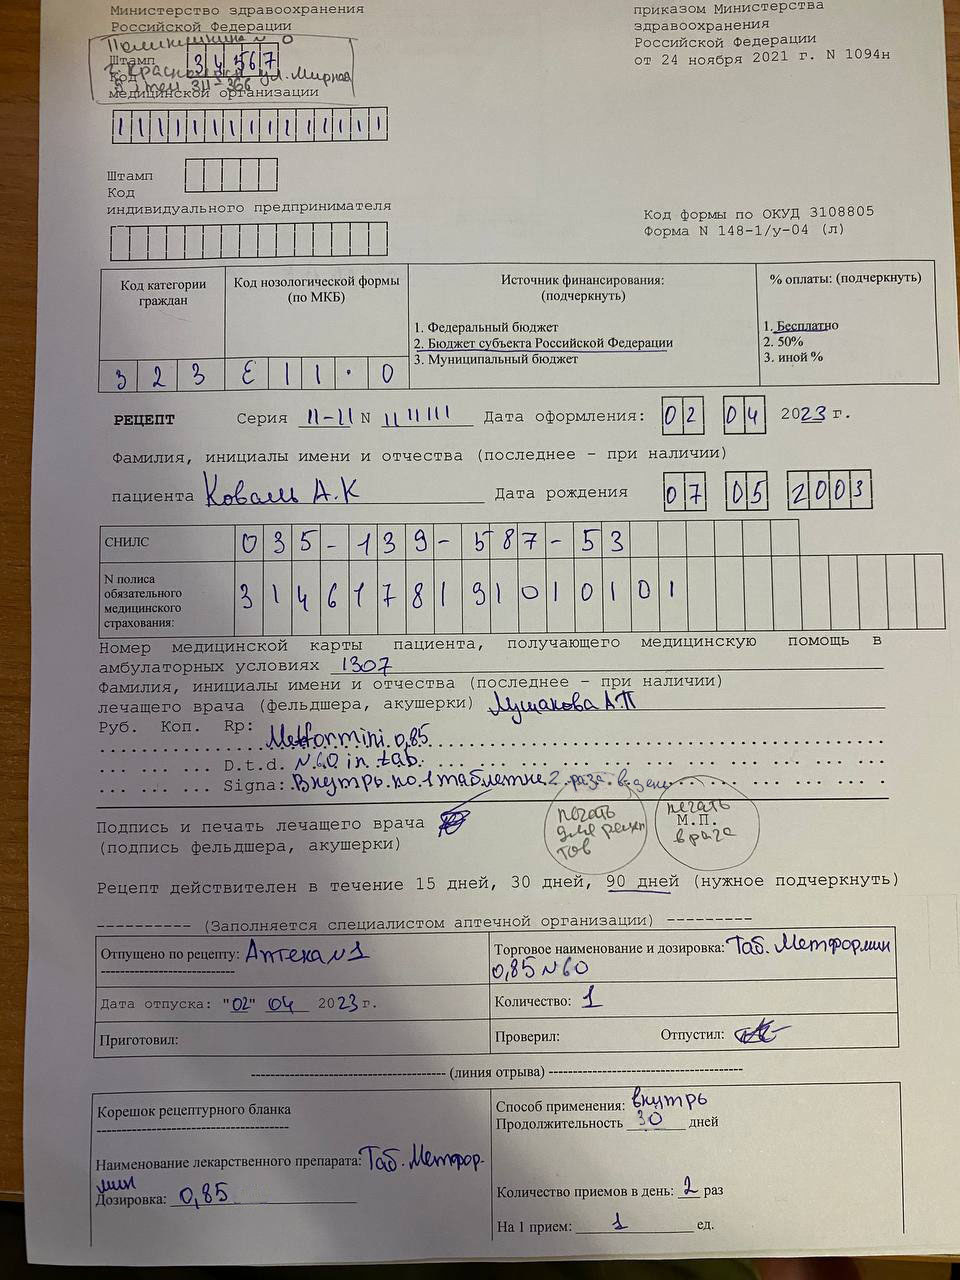 Министерство здравоохранения
Российской Федерации
приказом Министерства
здравоохранения
Российской Федерации
от 24 ноября 2021 г. N 1094н
Штамп 34567
Код ул. Мирная
медицинской организации
111111111111111
Штамп
Код
индивидуального предпринимателя
Код формы по ОКУД 3108805
Форма N 148-1/у-04 (л)
Код категории граждан
Код нозологической формы (по МКБ)
Источник финансирования: (подчеркнуть)
% оплаты: (подчеркнуть)
1. Федеральный бюджет
2. Бюджет субъекта Российской Федерации
3. Муниципальный бюджет
1. Бесплатно
2. 50%
3. иной %
323 E11.0
РЕЦЕПТ Серия 11-11 N 111111 Дата оформления: 02 04 2023 г.
Фамилия, инициалы имени и отчества (последнее – при наличии)
пациента Коваль А.К Дата рождения 07 05 2003
СНИЛС 035-139-587-53
N полиса обязательного медицинского страхования: 3146178131010101
Номер медицинской карты пациента, получающего медицинскую помощь в
амбулаторных условиях 1307
Фамилия, инициалы имени и отчества (последнее – при наличии)
лечащего врача (фельдшера, акушерки) Лушакова А П
Руб. Коп. Rp: Metformini 0,85
D.t.d. N60 in tab.
Signa: Внутрь по 1 таблетке 2 раза в день
Подпись и печать лечащего врача
(подпись фельдшера, акушерки)
печать
для рецеп
тов
печать
М.П.
врача
Рецепт действителен в течение 15 дней, 30 дней, 90 дней (нужное подчеркнуть)
---------- (Заполняется специалистом аптечной организации) ---------
Отпущено по рецепту: Аптека N1
Торговое наименование и дозировка: Таб. Метформин
0,85 N60
Дата отпуска: "02" 04 2023 г.
Количество: 1
Приготовил:
Проверил: Отпустил:
(линия отрыва)
Корешок рецептурного бланка
Способ применения: внутрь
Продолжительность 30 дней
Наименование лекарственного препарата: Таб. Метфор-
мин
Дозировка: 0,85
Количество приемов в день: 2 раз
На 1 прием: 1 ед.